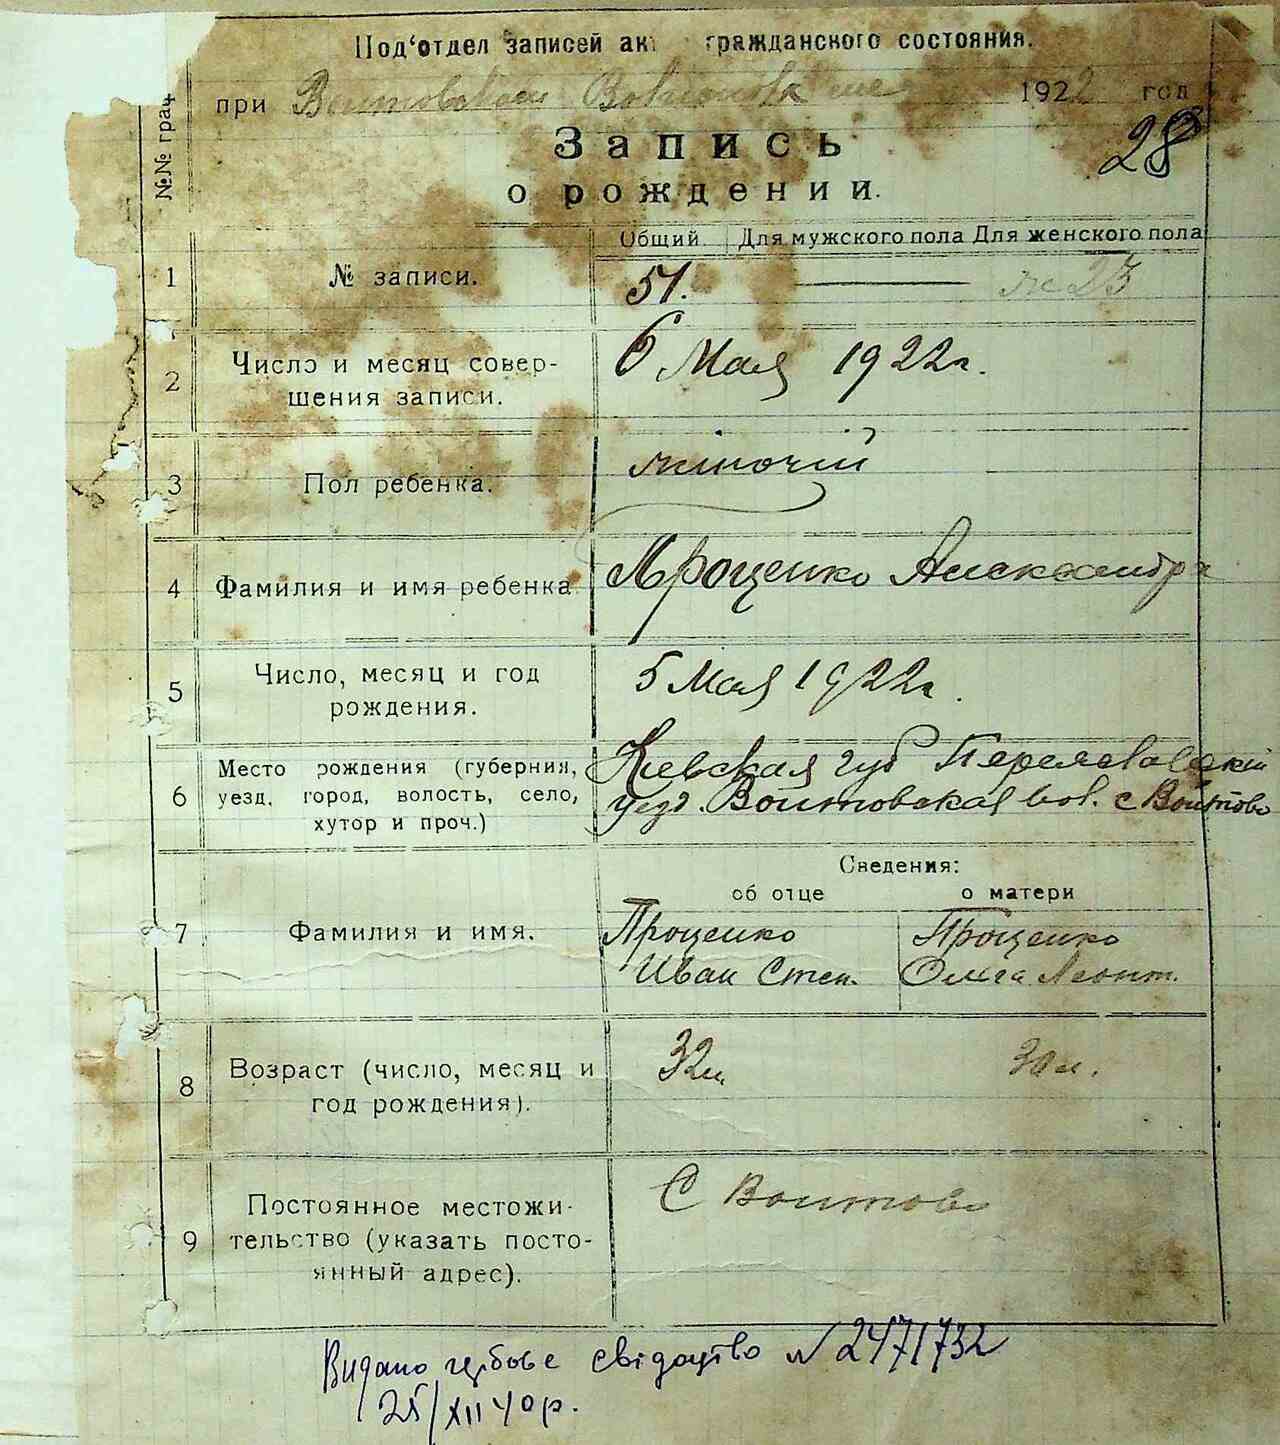 Под'отдел записей ак гражданского состояния.
при Воитовском 1922 год
28
Запись
о рождении.
№№ граф
Общий Для мужского пола Для женского пола
1 № записи. 51. — 23
2 Число и месяц совер-
шения записи.
6 Мая 1922г.
3 Пол ребенка. жіночій
4 Фамилия и имя ребенка Проценко Александра
5 Число, месяц и год
рождения.
5 Мая 1922г.
6 Место рождения (губерния,
уезд, город, волость, село,
хутор и проч.)
Киевская губ Переяславский
уезд. Воитовская вол. с Воитово
Сведения:
об отце о матери
7 Фамилия и имя.
Проценко
Иван Степ.
Проценко
Ольга Леонт.
8 Возраст (число, месяц и
год рождения).
32 л. 30 л.
9 Постоянное местожи-
тельство (указать посто-
янный адрес).
С Воитово
Видано гербове свідоцтво N 2471732
25/XII 40 р.